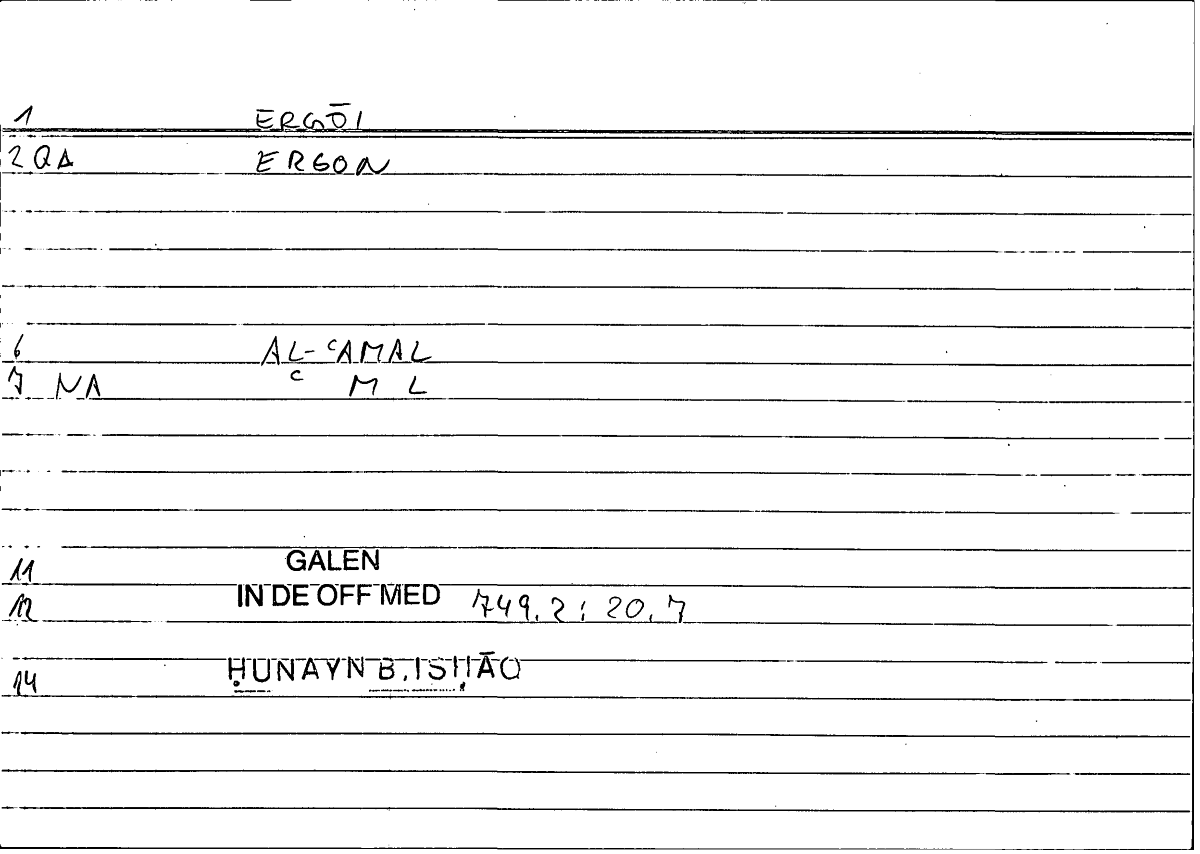 1 ERGŌI
2 QA ERGON
6 AL-ʿAMAL
7 NA ʿ M L
11 GALEN
12 IN DE OFF MED 749.2 : 20.7
14 ḤUNAYN B. ISḤĀQ